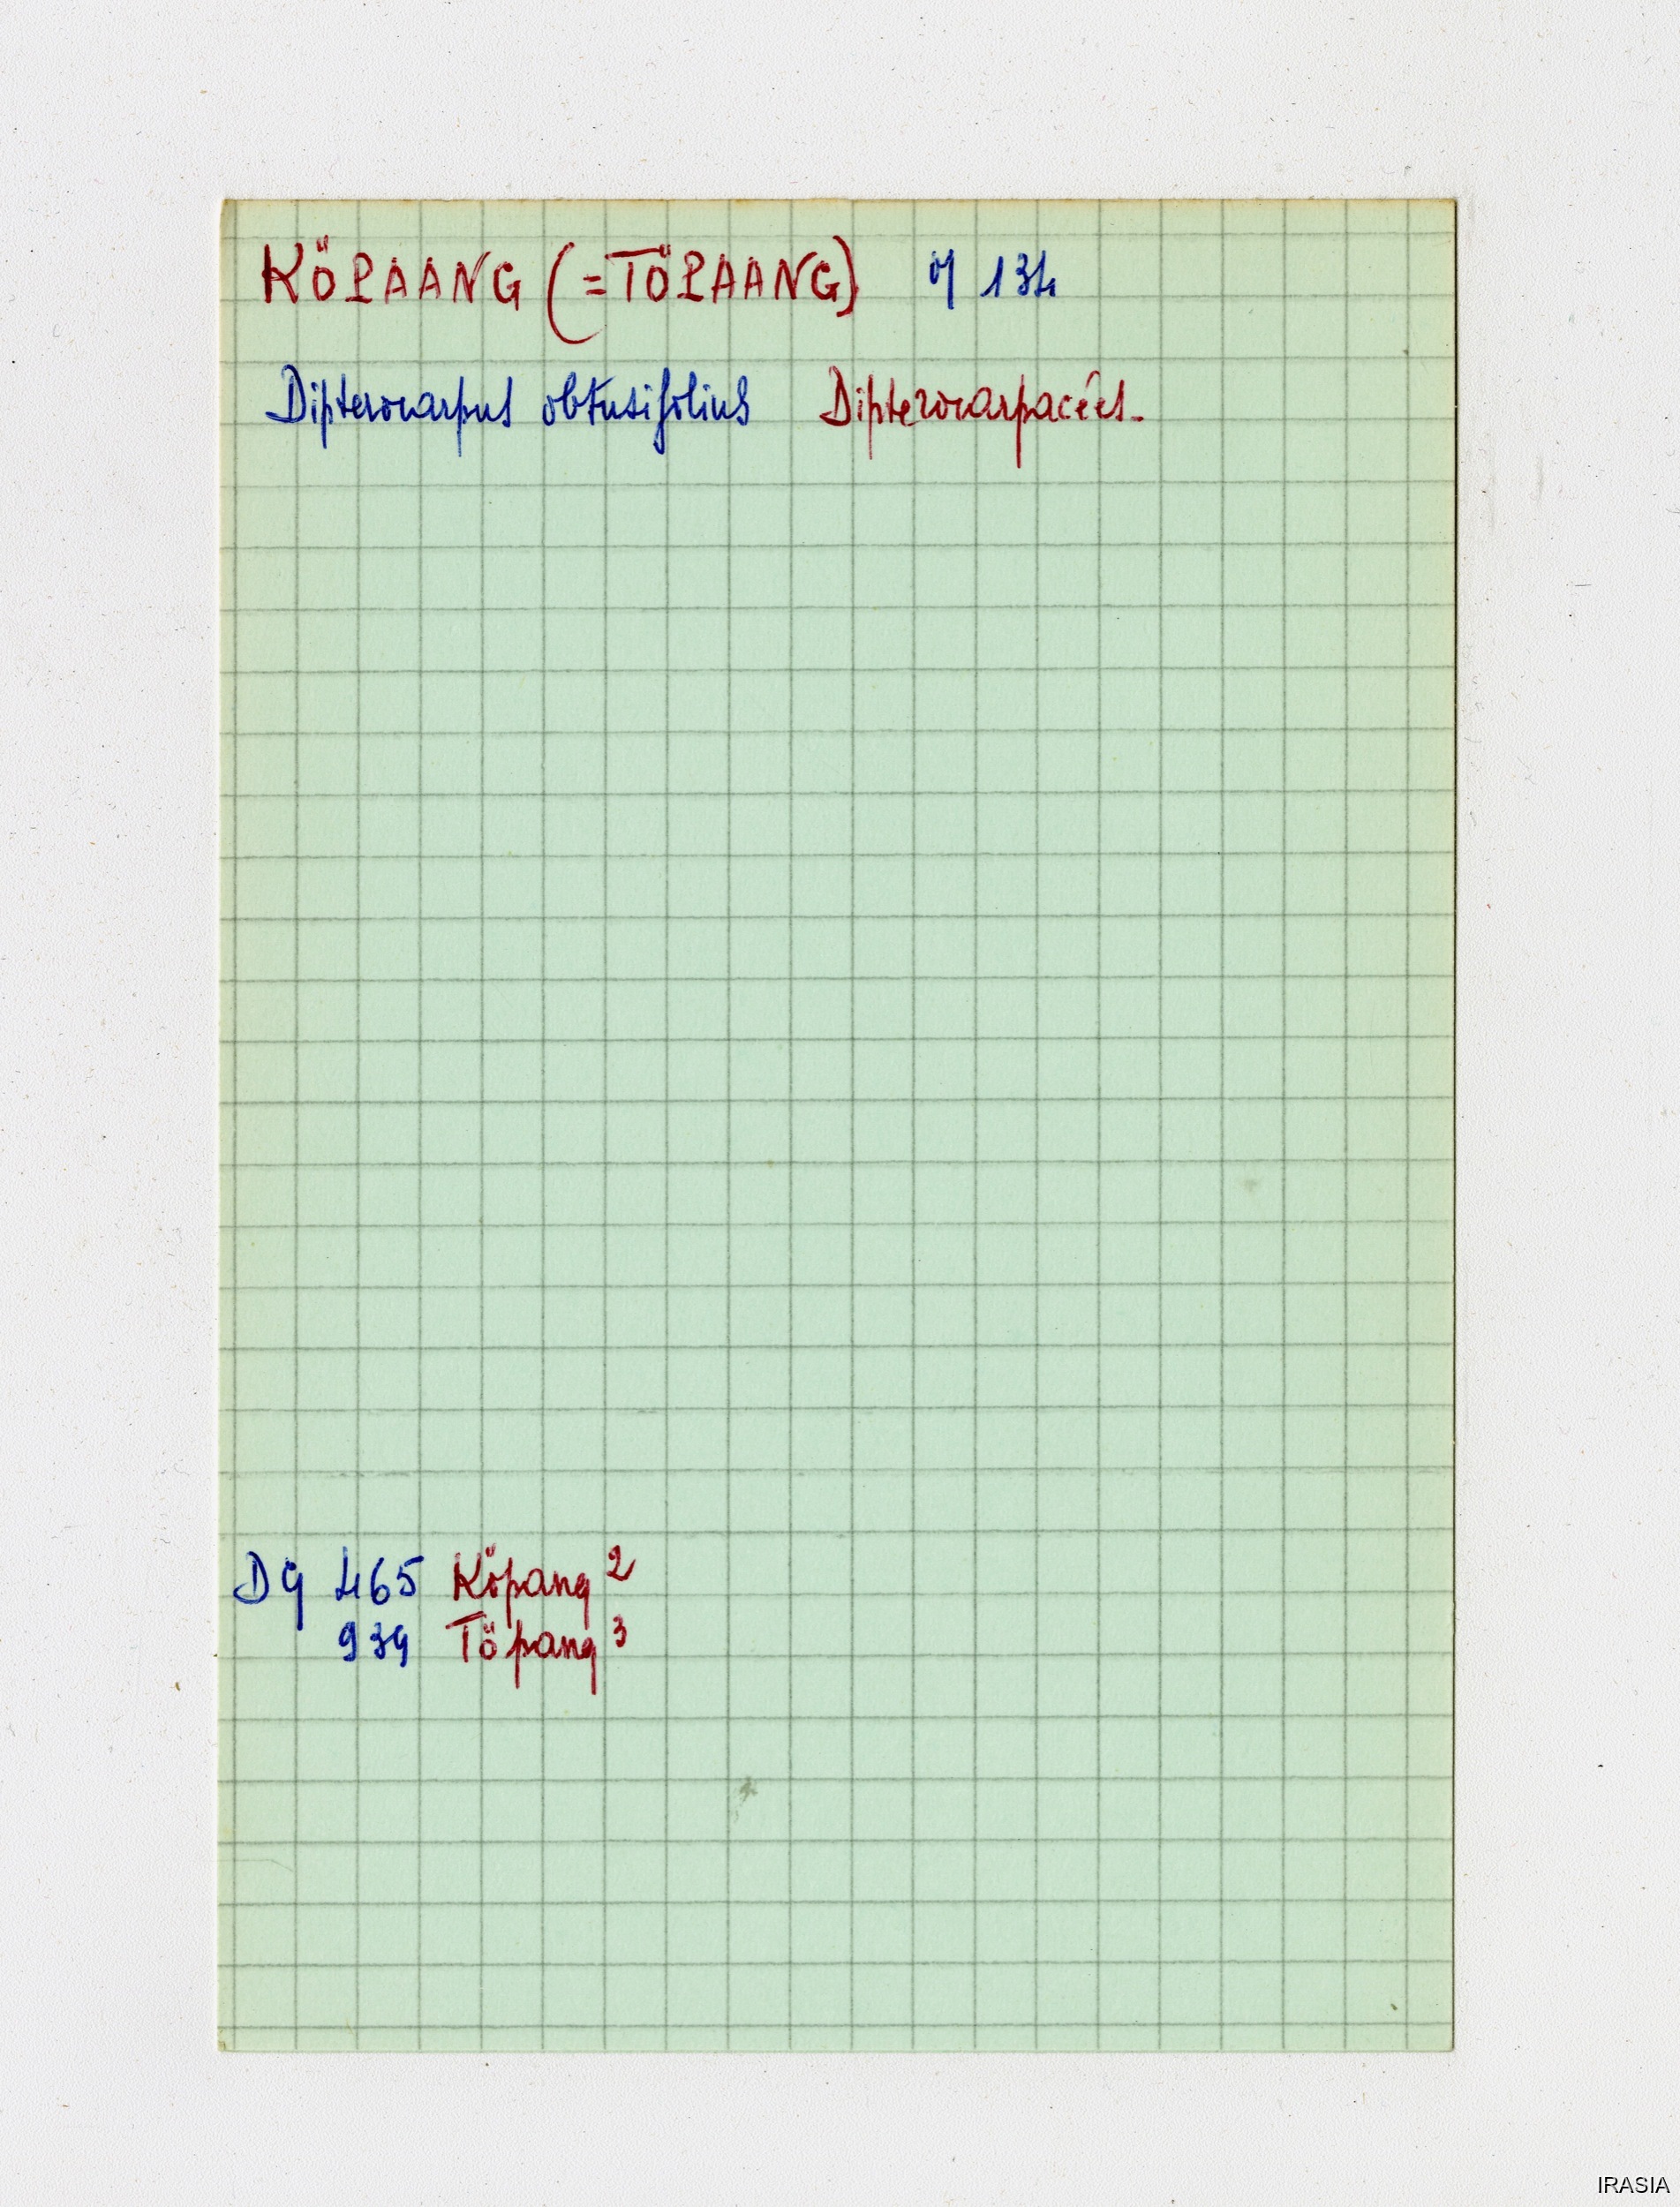 KÖPAANG (=TÖPAANG) 134
Dipterocarpus obtusifolius Dipterocarpacées.
DG 465 Köpang 2
939 Töpang 3
IRASIA